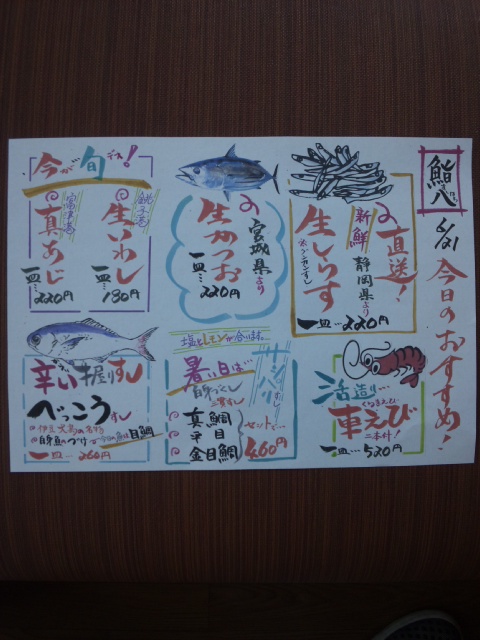 鮨八
6/21 今日のおすすめ!
直送!
静岡県より
新鮮
生しらす
一皿…220円
宮城県より
生かつお
一皿…220円
今が旬デス!
銚子港
生いわし
一皿…180円
富津港
真あじ
一皿…220円
活造り…
くるまえび
車えび
二本付!
一皿…520円
塩とレモンが合います。
暑い日は…
サッパリすし
白身づくし
三貫すし
真鯛
平目
金目鯛
セットで…
460円
辛い握りすし
べっこうすし
伊豆大島の名物
白身魚のづけ
今日の魚は目鯛
一皿…260円